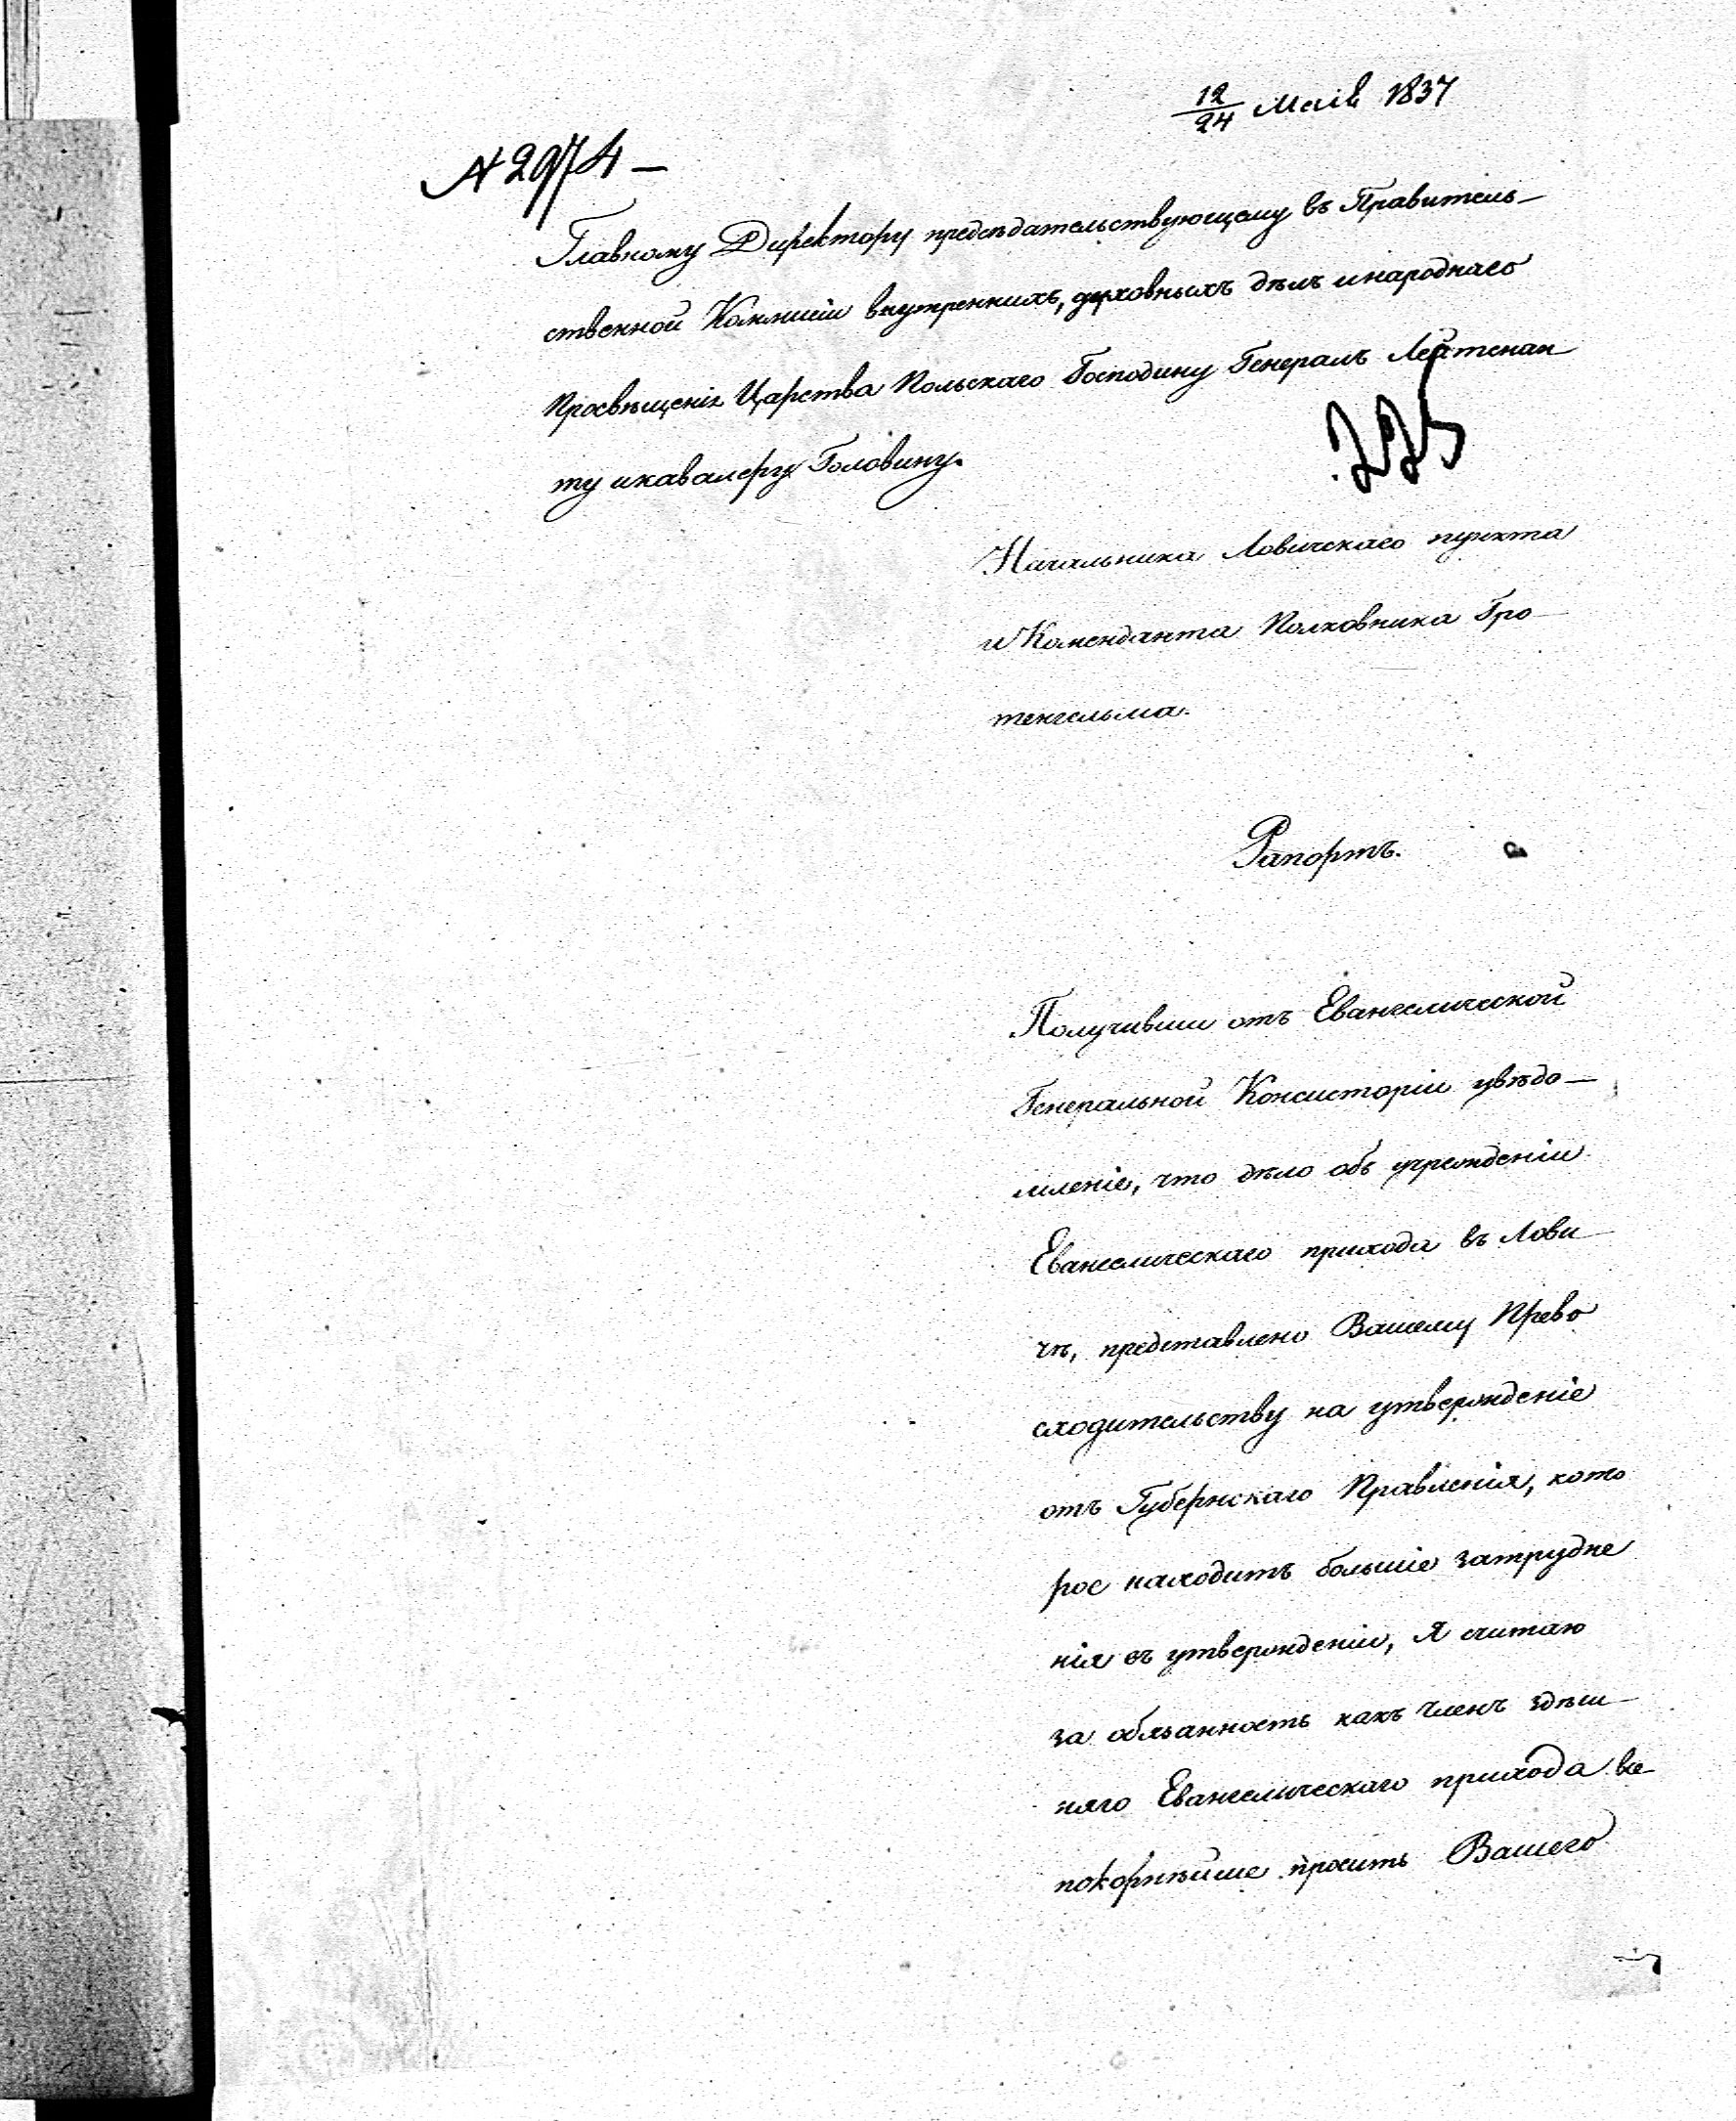 12/24 Маія 1837
N 2974 —
Главному Директору предсѣдательствующему въ Правитель-
ственной Коммисіи внутреннихъ, духовныхъ дѣлъ и народнаго
Просвѣщенія Царства Польскаго Господину Генералъ Лейтенан-
ту и кавалеру Головину.
Начальника Ловичскаго пункта
и Коменданта Полковника Гро-
тенгельма.
Рапортъ.
Получивши отъ Евангелической
Генеральной Консисторіи увѣдо-
мленіе, что дѣло объ учрежденіи
Евангелическаго прихода въ Лови-
чѣ, представлено Вашему Прево
сходительству на утвержденіе
отъ Губернскаго Правленія, кото
рое находитъ большіе затрудне
нія въ утвержденіи, Я считаю
за обязанность какъ Членъ здѣш-
няго Евангелическаго прихода все-
покорнѣйше просить Вашего